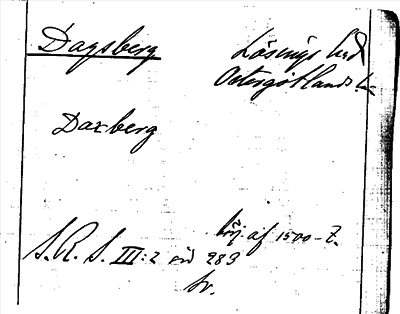 Dagsberg Lösings hd
Östergötlands l.
Daxberg
börj. af 1500-t.
S. R. S. III:2 sid 289
sv.